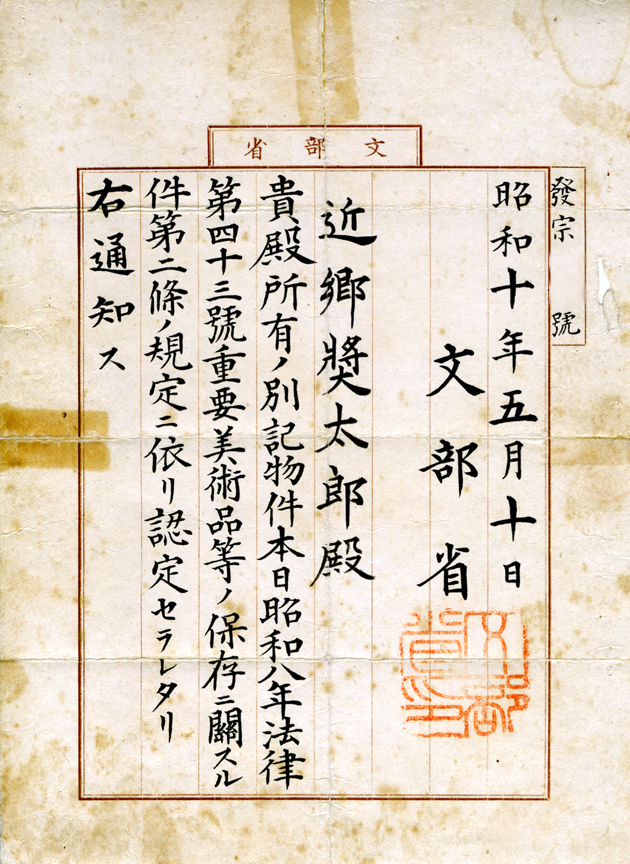 文部省
發宗　號
昭和十年五月十日
文部省
文部省印
近郷奬太郎殿
貴殿所有ノ別記物件本日昭和八年法律
第四十三號重要美術品等ノ保存ニ關スル
件第二條ノ規定ニ依リ認定セラレタリ
右通知ス